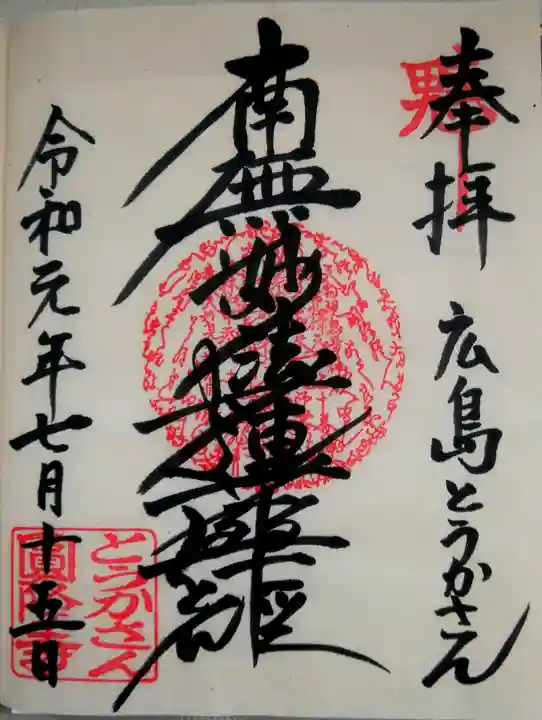 奉拝
広島とうかさん
南無妙法蓮華経
令和元年七月十五日
とうかさん
圓隆寺